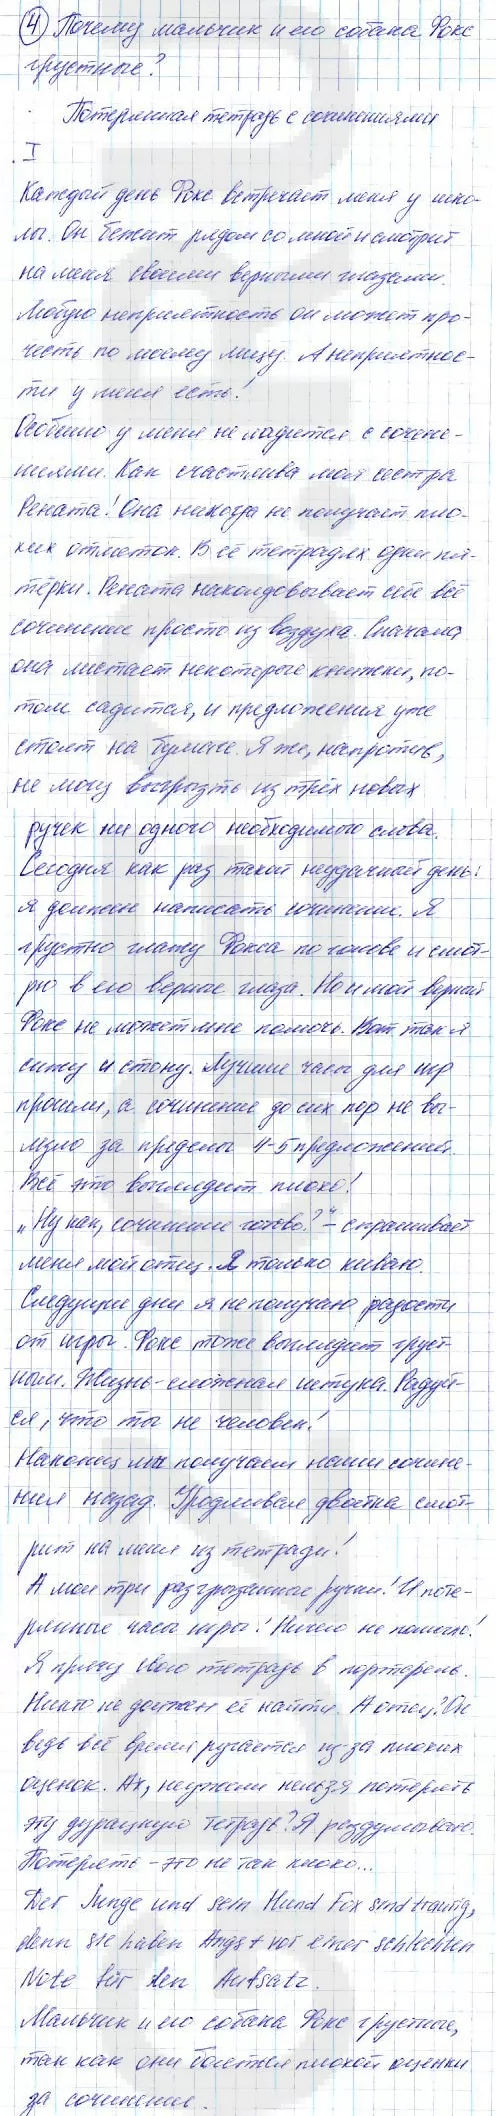 4 Почему мальчик и его собака Фокс
грустные?
Потерянная тетрадь с сочинениями
I
Каждый день Фокс встречает меня у шко-
лы. Он бежит рядом со мной и смотрит
на меня своими верными глазами.
Любую неприятность он может про-
честь по моему лицу. А неприятнос-
ти у меня есть!
Особенно у меня не ладится с сочине-
ниями. Как счастлива моя сестра
Рената! Она никогда не получает пло-
хих отметок. В её тетрадях одни пя-
тёрки. Рената наколдовывает себе всё
сочинение просто из воздуха. Сначала
она листает некоторые книжки, по-
том садится, и предложения уже
стоят на бумаге. Я же, напротив,
не могу выгрызть из трёх новых
ручек ни одного необходимого слова.
Сегодня как раз такой неудачный день:
я должен написать сочинение. Я
грустно глажу Фокса по голове и смот-
рю в его верные глаза. Но и мой верный
Фокс не может мне помочь. Вот так я
сижу и стону. Лучшие часы для игр
прошли, а сочинение до сих пор не вы-
лезло за пределы 4-5 предложений.
Всё это выглядит плохо!
„Ну как, сочинение готово?" - спрашивает
меня мой отец. Я только киваю.
Следущие дни я не получаю радости
от игры. Фокс тоже выглядит груст-
ным. Жизнь - сложная штука. Радуй-
ся, что ты не человек!
Наконец мы получаем наши сочине-
ния назад. Уродливая двойка смот-
рит на меня из тетради!
А мои три разгрызанные ручки! И поте-
рянные часы игры! Ничего не помогло!
Я прячу свою тетрадь в портфель.
Никто не должен её найти. А отец? Он
ведь всё время ругается из за плохих
оценок. Ах, неужели нельзя потерять
эту дурацкую тетрадь? Я раздумываю.
Потерять - это не так плохо...
Der Junge und sein Hund Fox sind traurig,
denn sie haben Angst vor einer schlechten
Note für den Aufsatz.
Мальчик и его собака Фокс грустные,
так как они боятся плохой оценки
за сочинение.